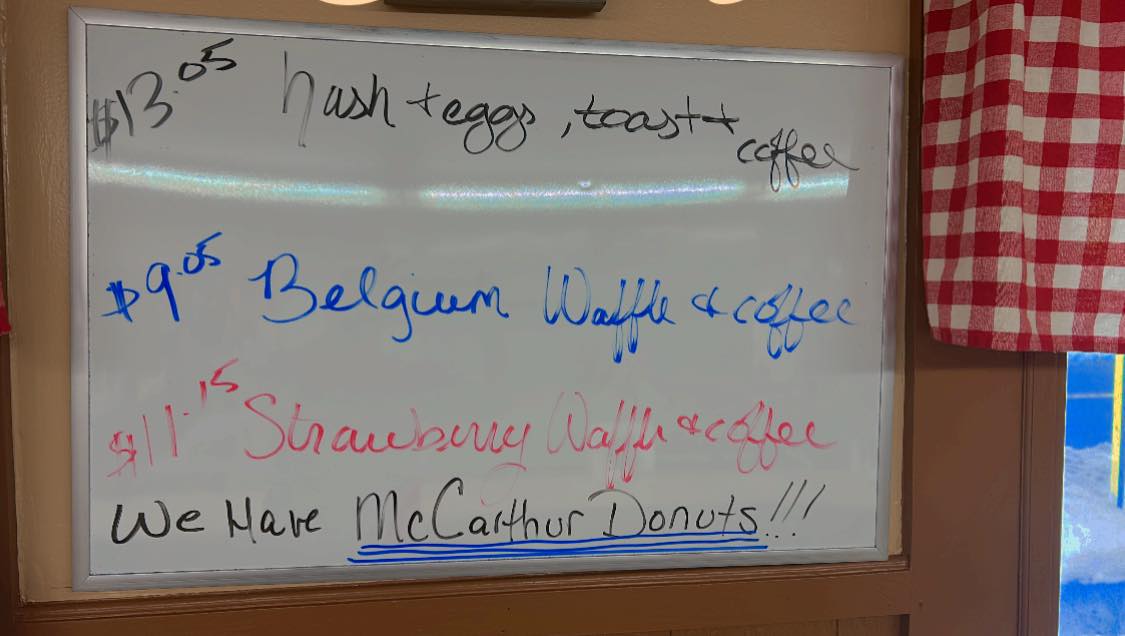 $13.05 hash + eggs, toast + coffee
$9.05 Belgium Waffle & coffee
$11.15 Strawberry Waffle & coffee
We Have McCarthur Donuts!!!